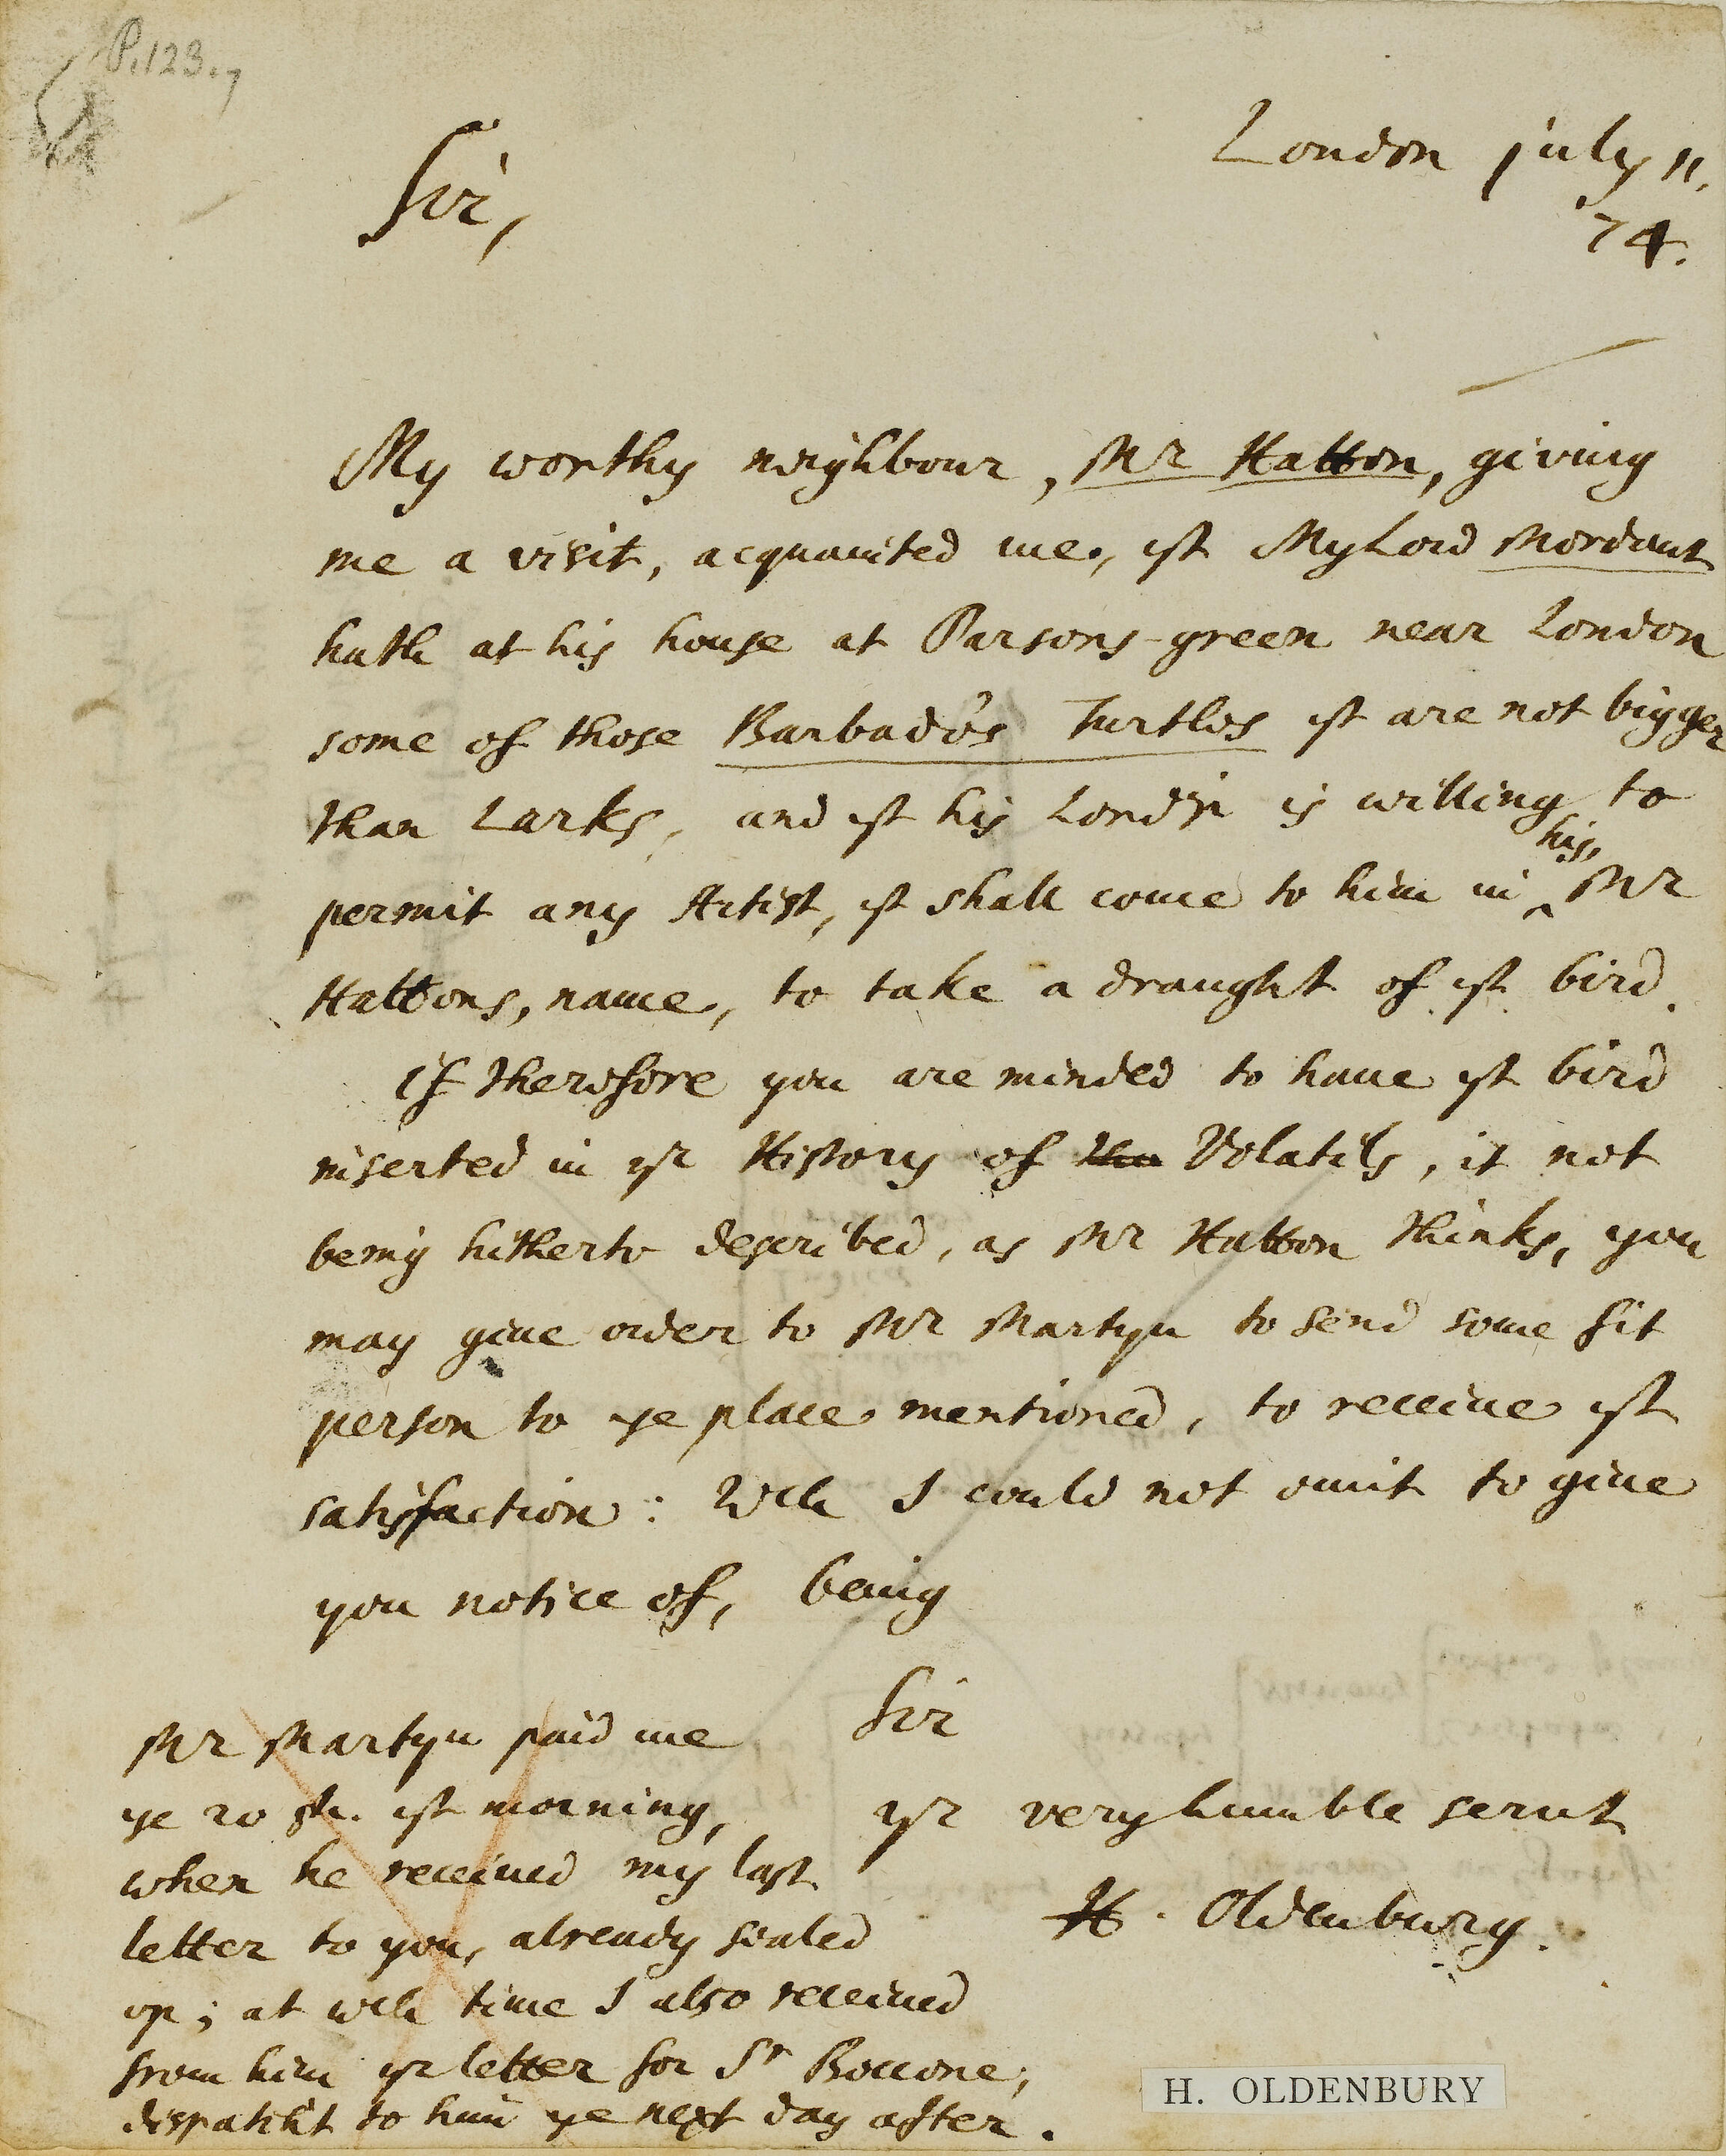 P. 123.
London july 11.
74.
Sir,
My worthy neighbour, Mr Hatton, giving
me a visit, acquainted me, yt My Lord Mordant
hath at his house at Parsons-green near London
some of those Barbado's Turtles yt are not bigger
than Larks, and yt his Lordp is willing to
permit any Artist, yt shall come to him in ^his, Mr
Hattons, name, to take a draught of yt bird.
If therefore you are minded to have yt bird
inserted in yr History of Volatils, it not
being hitherto described, as Mr Hatton thinks, you
may give order to Mr Martyn to send some fit
person to ye place mentioned, to receive yt
satisfaction: Wch I could not omit to give
you notice of, being
Sir
yr very humble servt
H. Oldenburg.
Mr Martyn paid me
ye 20 sh. yt morning,
when he received my last
letter to you, already sealed
up; at wch time I also received
from him yr letter for Sr Boccone,
dispatch't to him ye next day after.
H. OLDENBURY